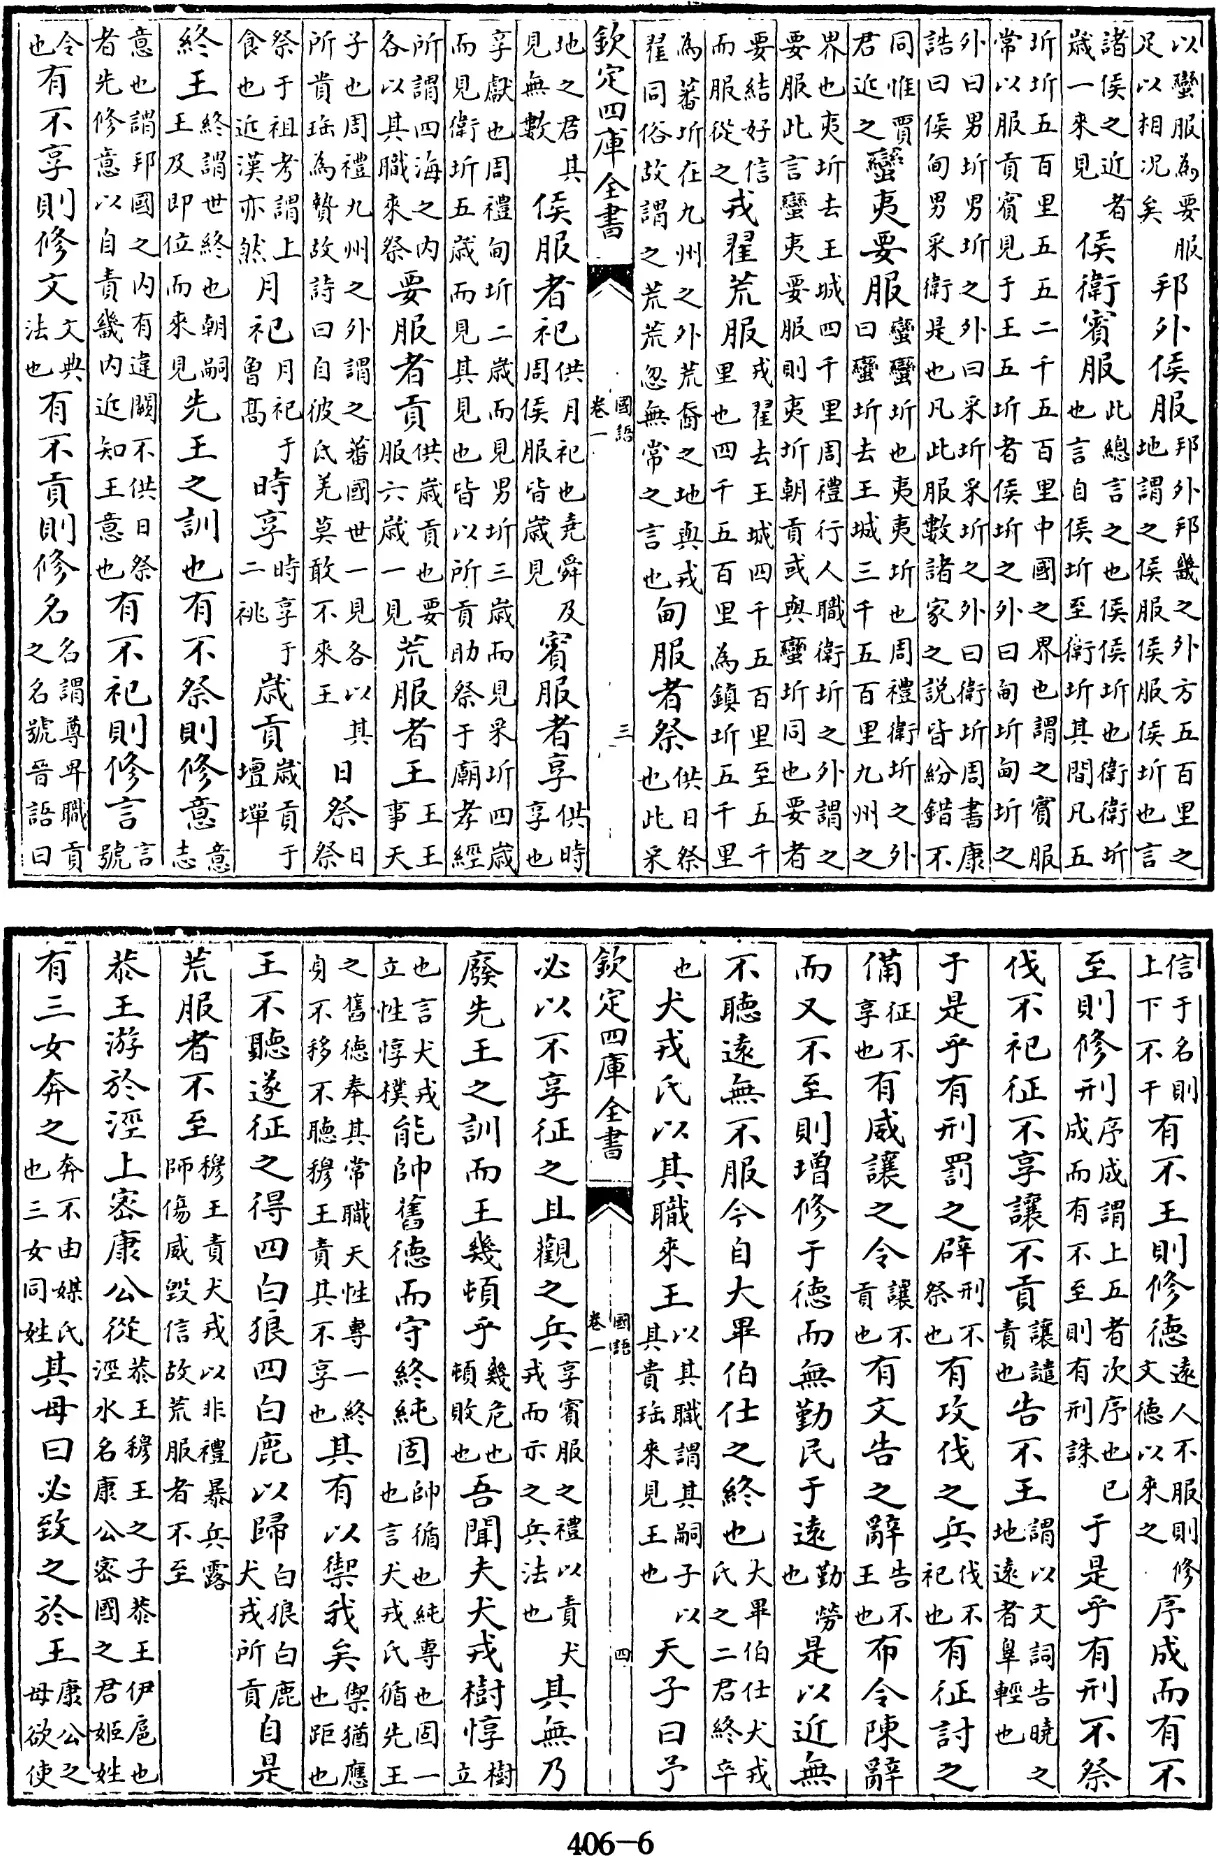 以蠻服為要服足以相况矣邦外侯服邦外邦畿之外方五百里之地謂之侯服侯服侯圻也言
諸侯之近者歲一來見侯衛賓服此總言之也侯侯圻也衛衛圻也言自侯圻至衛圻其間凡五
圻圻五百里五五二千五百里中國之界也謂之賓服常以服貢賓見于王五圻者侯圻之外曰甸圻甸圻之
外曰男圻男圻之外曰采圻采圻之外曰衛圻周書康誥曰侯甸男采衛是也凡此服數諸家之説皆紛錯不
同惟賈君近之蠻夷要服蠻蠻圻也夷夷圻也周禮衛圻之外曰蠻圻去王城三千五百里九州之
界也夷圻去王城四千里周禮行人職衛圻之外謂之要服此言蠻夷要服則夷圻朝貢或與蠻圻同也要者
要結好信而服從之戎翟荒服戎翟去王城四千五百里至五千里也四千五百里為鎮圻五千里
為蕃圻在九州之外荒裔之地與戎翟同俗故謂之荒荒忽無常之言也甸服者祭供日祭也此采
欽定四庫全書 國語卷一 三
地之君其見無數侯服者祀供月祀也堯舜及周侯服皆歲見賓服者享供時享也
享獻也周禮甸圻二歲而見男圻三歲而見采圻四歲而見衛圻五歲而見其見也皆以所貢助祭于廟孝經
所謂四海之内各以其職來祭要服者貢供歲貢也要服六歲一見荒服者王王王事天
子也周禮九州之外謂之蕃國世一見各以其所貴珤為贄故詩曰自彼氐羌莫敢不來王日祭日祭
祭于祖考謂上食也近漢亦然月祀月祀于曾高時享時享于二祧歲貢歲貢于壇墠
終王終謂世終也朝嗣王及即位而來見先王之訓也有不祭則修意意志
意也謂邦國之内有違闕不供日祭者先修意以自責畿内近知王意也有不祀則修言言號
令也有不享則修文文典法也有不貢則修名名謂尊卑職貢之名號晉語曰
信于名則上下不干有不王則修德遠人不服則修文德以來之序成而有不
至則修刑序成謂上五者次序也已成而有不至則有刑誅于是乎有刑不祭
伐不祀征不享讓不貢讓譴責也告不王謂以文詞告曉之地遠者辠輕也
于是乎有刑罰之辟刑不祭也有攻伐之兵伐不祀也有征討之
備征不享也有威讓之令讓不貢也有文告之辭告不王也布令陳辭
而又不至則增修于德而無勤民于遠勤勞也是以近無
不聽遠無不服今自大畢伯仕之終也大畢伯仕犬戎氏之二君終卒
也犬戎氏以其職來王以其職謂其嗣子以其貴珤來見王也天子曰予
欽定四庫全書 國語卷一 四
必以不享征之且觀之兵享賓服之禮以責犬戎而示之兵法也其無乃
廢先王之訓而王幾頓乎幾危也頓敗也吾聞夫犬戎樹惇樹立
也言犬戎立性惇樸能帥舊德而守終純固帥循也純專也固一也言犬戎氏循先王
之舊德奉其常職天性專一終身不移不聽穆王責其不享也其有以禦我矣禦猶應也距也
王不聽遂征之得四白狼四白鹿以歸白狼白鹿犬戎所貢自是
荒服者不至穆王責犬戎以非禮暴兵露師傷威毀信故荒服者不至
恭王游於涇上密康公從恭王穆王之子恭王伊扈也涇水名康公密國之君姬姓
有三女奔之奔不由媒氏也三女同姓其母曰必致之於王康公之母欲使
406-6